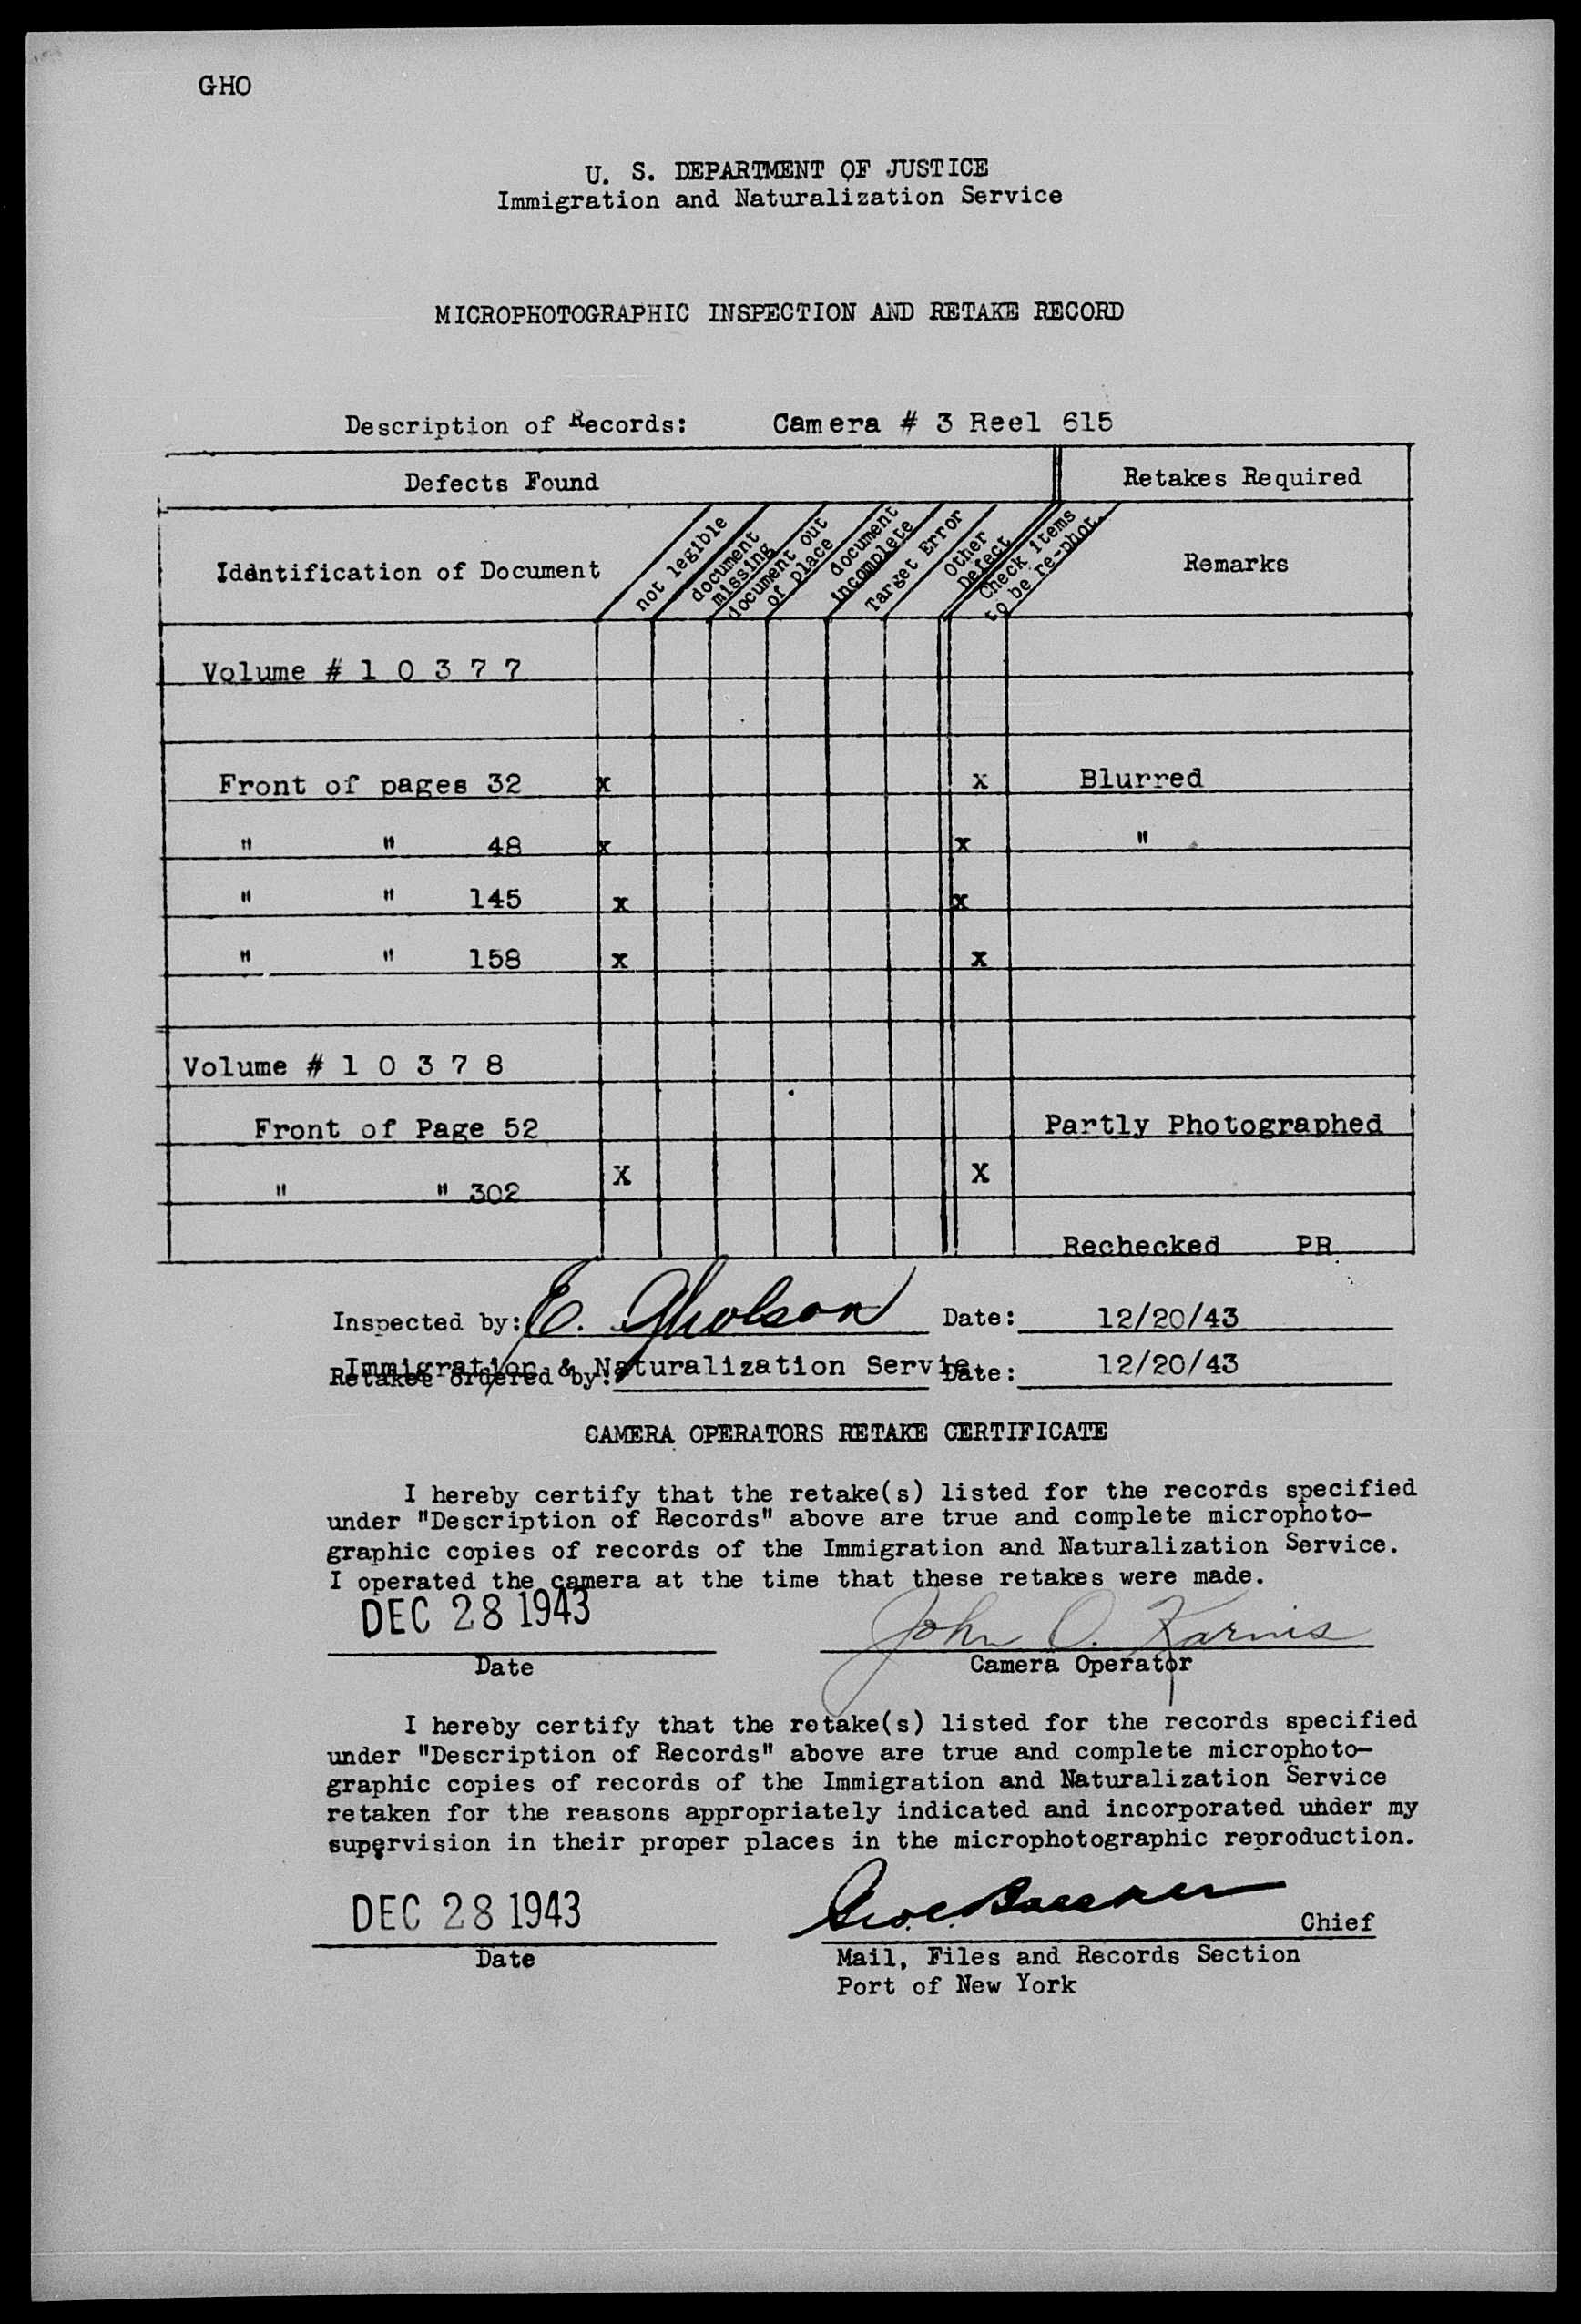 GHO
U. S. DEPARTMENT OF JUSTICE
Immigration and Naturalization Service
MICROPHOTOGRAPHIC INSPECTION AND RETAKE RECORD
Description of Records: Camera # 3 Reel 615
Defects Found Retakes Required
Identification of Document not legible document missing document out of place document incomplete Target Error Other Defect Check items to be re-phot. Remarks
Volume # 1 0 3 7 7
Front of pages 32 x x Blurred
" " 48 x x "
" " 145 x x
" " 158 x x
Volume # 1 0 3 7 8
Front of Page 52 Partly Photographed
" " 302 X X
Rechecked PR
Inspected by: E. Gholson Date: 12/20/43
Immigration & Naturalization Servie
Retakes ordered by: Date: 12/20/43
CAMERA OPERATORS RETAKE CERTIFICATE
I hereby certify that the retake(s) listed for the records specified
under "Description of Records" above are true and complete microphoto-
graphic copies of records of the Immigration and Naturalization Service.
I operated the camera at the time that these retakes were made.
DEC 28 1943 John O. Karnis
Date Camera Operator
I hereby certify that the retake(s) listed for the records specified
under "Description of Records" above are true and complete microphoto-
graphic copies of records of the Immigration and Naturalization Service
retaken for the reasons appropriately indicated and incorporated under my
supervision in their proper places in the microphotographic reproduction.
DEC 28 1943 Chief
Date Mail, Files and Records Section
Port of New York